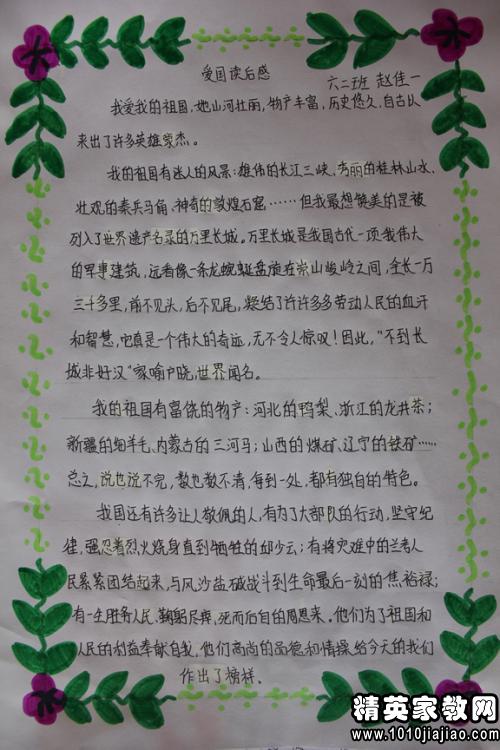 爱国读后感 六二班 赵佳一
我爱我的祖国,她山河壮丽,物产丰富,历史悠久,自古以
来出了许多英雄豪杰。
我的祖国有迷人的风景:雄伟的长江三峡、秀丽的桂林山水、
壮观的秦兵马俑、神奇的敦煌石窟……但我最想赞美的是被
列入了世界遗产名录的万里长城。万里长城是我国古代一项伟大
的军事建筑,远看像一条龙蜿蜒盘旋在崇山峻岭之间,全长一万
三千多里,前不见头,后不见尾,凝结了许许多多劳动人民的血汗
和智慧,它真是一个伟大的奇迹,无不令人惊叹!因此,"不到长
城非好汉"家喻户晓,世界闻名。
我的祖国有富饶的物产:河北的鸭梨、浙江的龙井茶;
新疆的细羊毛、内蒙古的三河马;山西的煤矿、辽宁的铁矿……
总之,说也说不完,数也数不清,每到一处,都有独自的特色。
我国还有许多让人敬佩的人,有为了大部队的行动,坚守纪
律,强忍着烈火烧身直到牺牲的邱少云;有将灾难中的兰考人
民紧紧团结起来,与风沙盐碱战斗到生命最后一刻的焦裕禄;
有一生服务人民、鞠躬尽瘁,死而后已的周恩来。他们为了祖国和
人民的利益奉献自我,他们高尚的品德和情操给今天的我们
作出了榜样。
精英家教网
www.1010jiajiao.com